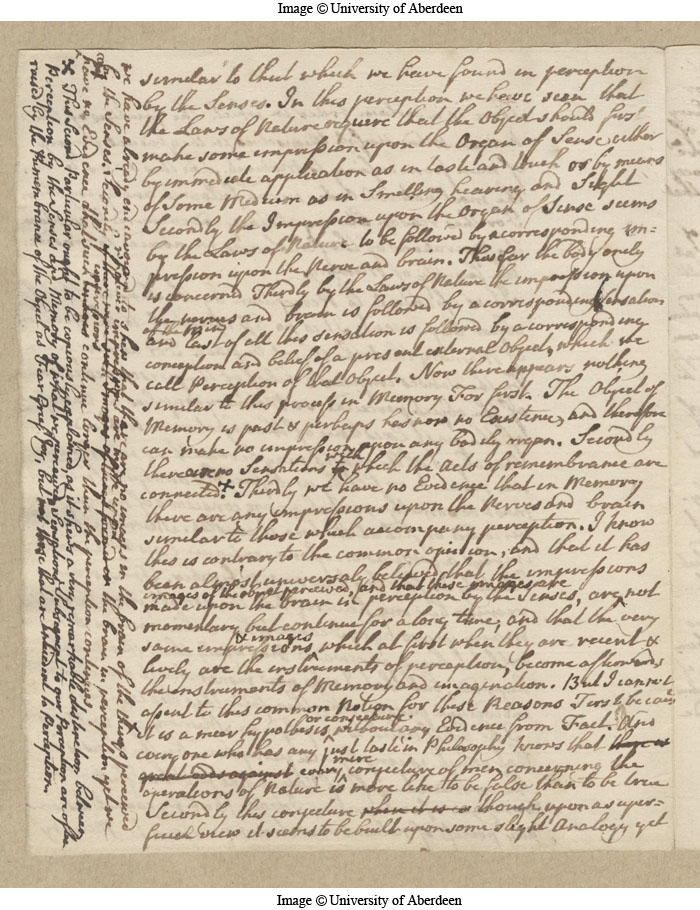 Image © University of Aberdeen
similar to that which we have found in perception
by the Senses. In this perception we have seen that
the Laws of Nature require that the Object should first
make some impression upon the Organ of Sense either
by immediate application as in taste and touch or by means
of Some Medium as in Smelling hearing and Sight
Secondly the Impression upon the Organ of Sense seems
by the Laws of Nature to be followed by a corresponding im-
pression upon the Nerve and brain. Thus far the body onely
is concerned Thirdly by the Laws of Nature the impression upon
the nerves and brain is followed by a corresponding Sensation
of the Mind
and last of all this sensation is followed by a corresponding
conception and belief of a present external Object, which we
call Perception of that Object. Now there appears nothing
similar to this process in Memory For first. The Object of
Memory is past & perhaps has now no Existence, and therefore
can make no impression upon any bodily organ. Secondly
there are no Sensations with which the acts of remembrance are
connected. + Thirdly we have no Evidence that in Memory
there are any impressions upon the Nerves and brain
similar to those which accompany perception. I know
this is contrary to the common opinion, and that it has
been almost universaly believed that the impressions
images of the objects perceived, and that these images are
made upon the brain in perception by the Senses, are not
momentary but continue for a long time, and that the very
& images
same impressions, which at first when they are recent &
lively are the instruments of perception, become afterwards
the instruments of Memory and imagination. But I cannot
assent to this common Notion for these Reasons First because
or conjecture
it is a mear hypothesis without any Evidence from Fact. And
every one who has any just taste in Philosophy knows that there is
mere
great odds against every conjecture of men concerning the
operations of Nature is more like to be false than to be true
Secondly this conjecture when it is though upon a super-
ficial view it seems to be built upon some slight Analogy yet
we have already endeavoured to shew that there are no images in the brain of the things perceived
by the Senses, Secondly
have no Evidence that such impressions continue longer than the perception continues,
+ This Second Particular ought to be copiously explained, as it shews a very remarkable distinction between
Perception by the Senses and Memory of what we perceived. Sensations subsequent to our Perception are often
raised by the Remembrance of the Object as Fear Grief Joy, but not those that are antecedent to Perception.
Image © University of Aberdeen